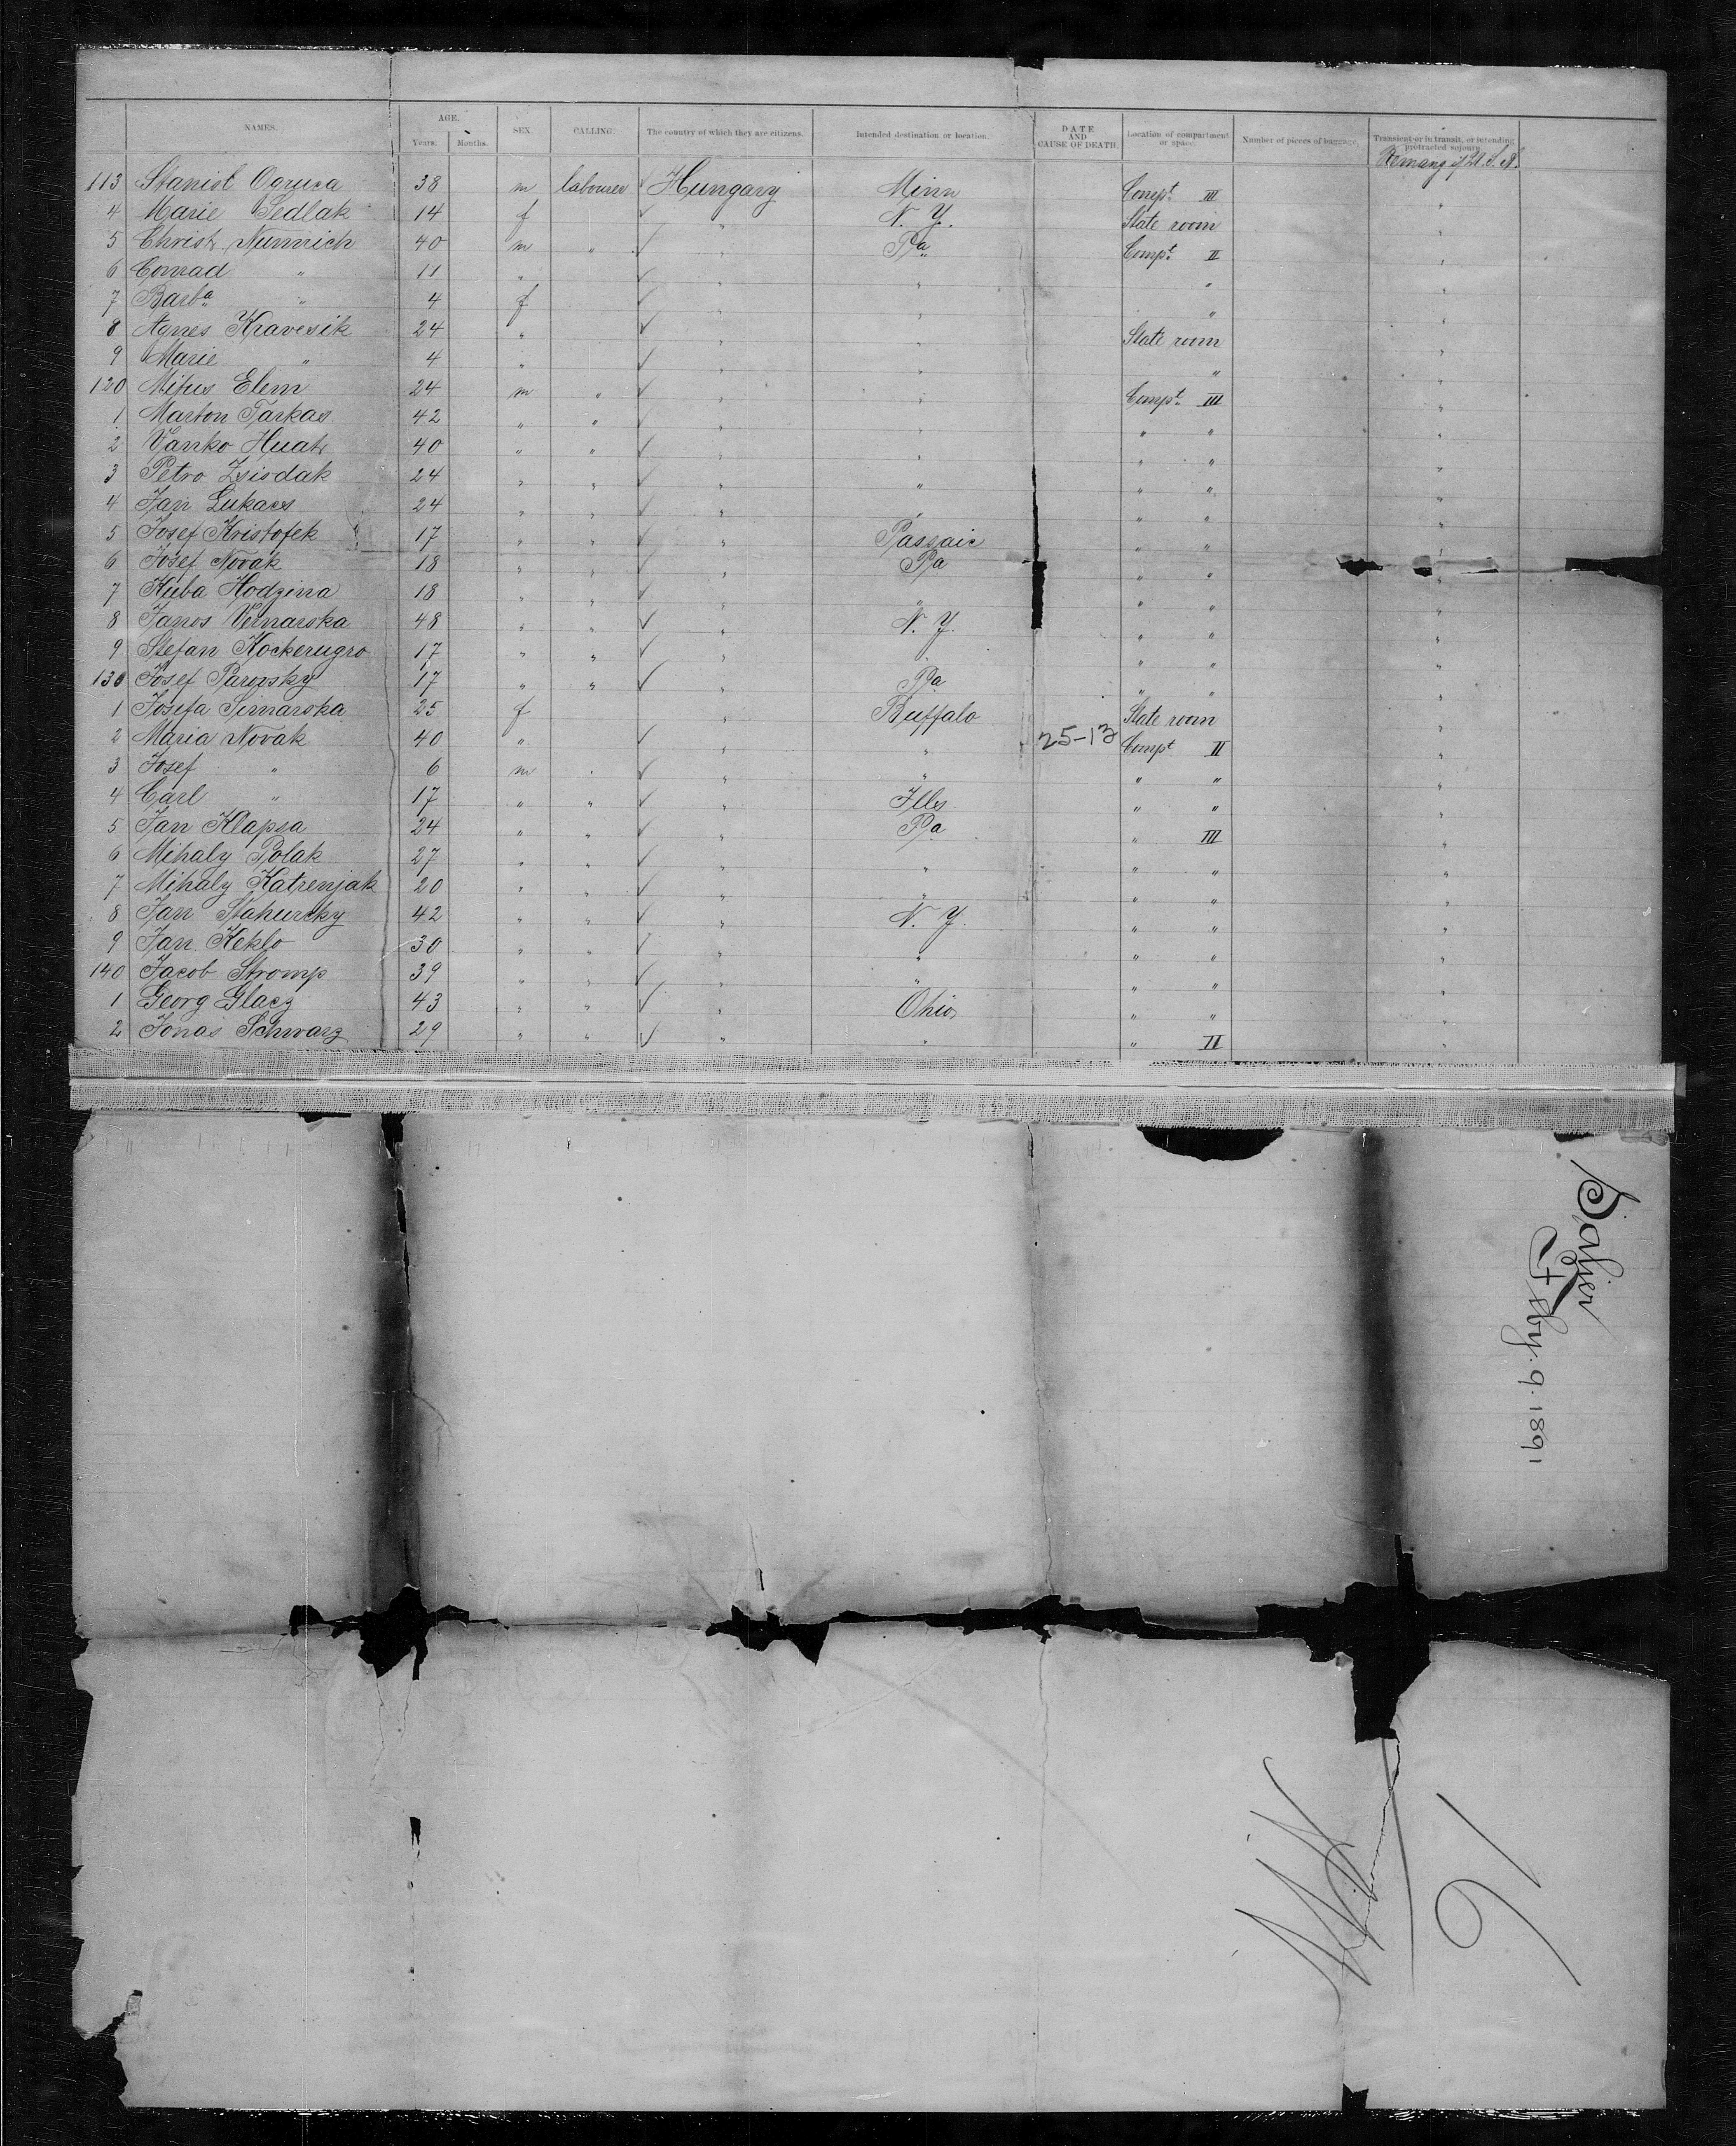 NAMES. AGE. Years. Months. SEX. CALLING. The country of which they are citizens. Intended destination or location. DATE AND CAUSE OF DEATH. Location of compartment or space. Number of pieces of luggage. Transient or in transit, or intending protracted sojourn.
U.S.A.
113 Stanisl Ogruca 38 m labourer ✓ Hungary Minn Compt. III "
4 Marie Sedlak 14 f ✓ " N. Y. State room "
5 Christ. Nemnich 40 m " ✓ " Pa Compt. II "
6 Conrad " 11 " ✓ " " " "
7 Barba " 4 f ✓ " " " "
8 Agnes Kravesik 24 " ✓ " " State room "
9 Marie " 4 " ✓ " " " "
120 Mitus Elem 24 m " ✓ " " Compt. III "
1 Marton Farkas 42 " " ✓ " " " " "
2 Yanko Huats 40 " " ✓ " " " " "
3 Petro Zsisdak 24 " " ✓ " " " " "
4 Jan Lukacs 24 " " ✓ " " " " "
5 Josef Kristofek 17 " " ✓ " Passaic " " "
6 Josef Novak 18 " " ✓ " Pa " " "
7 Kuba Hodzina 18 " " ✓ " " " " "
8 Janos Vernarska 48 " " ✓ " N. Y. " " "
9 Stefan Kockerugro 17 " " ✓ " " " " "
130 Josef Parovsky 17 " " ✓ " Pa " " "
1 Josefa Simarska 25 f " Buffalo State room "
2 Maria Novak 40 " ✓ " " 25-13 Compt II "
3 Josef " 6 m ✓ " " " " "
4 Carl " 17 " " ✓ " Ills " " "
5 Jan Klapsa 24 " " ✓ " Pa " III "
6 Mihaly Polak 27 " " ✓ " " " " "
7 Mihaly Katrenjak 20 " " ✓ " " " " "
8 Jan Stahursky 42 " " ✓ " N. Y. " " "
9 Jan Keklo 30 " " ✓ " " " " "
140 Jacob Stromp 39 " " ✓ " " " " "
1 Georg Glacz 43 " " ✓ " Ohio " " "
2 Jonas Schwarz 29 " " ✓ " " " II "
Feby. 9. 1891
91